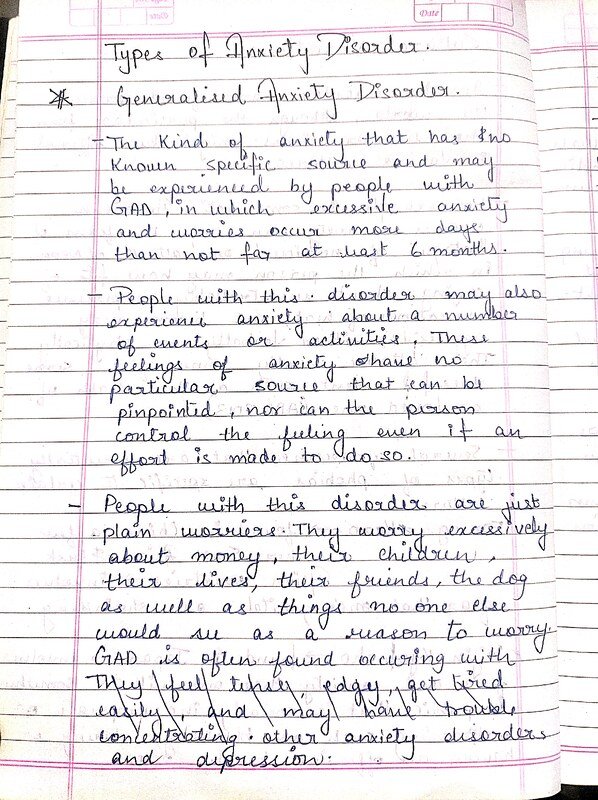 Date
Types of Anxiety Disorder.
* Generalised Anxiety Disorder.
- The kind of anxiety that has no
known specific source and may
be experienced by people with
GAD, in which excessive anxiety
and worries occur more days
than not far at least 6 months.
- People with this disorder may also
experience anxiety about a number
of events or activities. These
feelings of anxiety have no
particular source that can be
pinpointed, nor can the person
control the feeling even if an
effort is made to do so.
- People with this disorder are just
plain worriers. They worry excessively
about money, their children,
their lives, their friends, the dog
as well as things no one else
would see as a reason to worry.
GAD is often found occuring with
They feel tense, edgy, get tired
easily, and may have trouble
concentrating. other anxiety disorders
and depression.